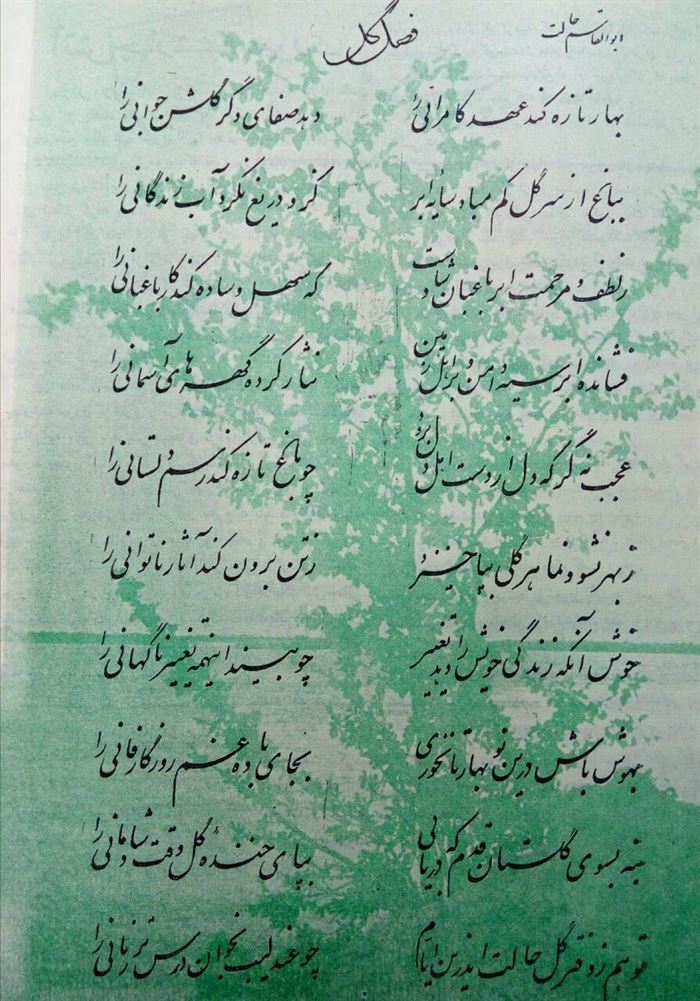 ابوالقاسم حالت
فصل گل
بهار تازه کند عهد کامرانی را
دهد صفای دگر گلشن جوانی را
بباغ از سر گل کم مباد سایه ابر
کز و دریغ نکرد آب زندگانی را
ز لطف و مرحمت ابر باغبان شادست
که سهل و ساده کند کار باغبانی را
فشانده ابر سیه دامن و بر اهل زمین
نثار کرده گهرهای آسمانی را
عجب نه گر که دل از دست اهل دل ببرد
چو باغ تازه کند رسم دلستانی را
ز بهر نشو و نما هر گلی بپا خیزد
ز تن برون کند آثار ناتوانی را
خوش آنکه زندگی خویش را دهد تغییر
چو بیند اینهمه تغییر ناگهانی را
بهوش باش درین نوبهار تا نخوری
بجای باده غم روزگار فانی را
بنه بسوی گلستان قدم که دریابی
بپای خنده گل وقت شادمانی را
تو هم ز دفتر گل حالت اندرین ایام
چو عندلیب بخوان درس تر زبانی را